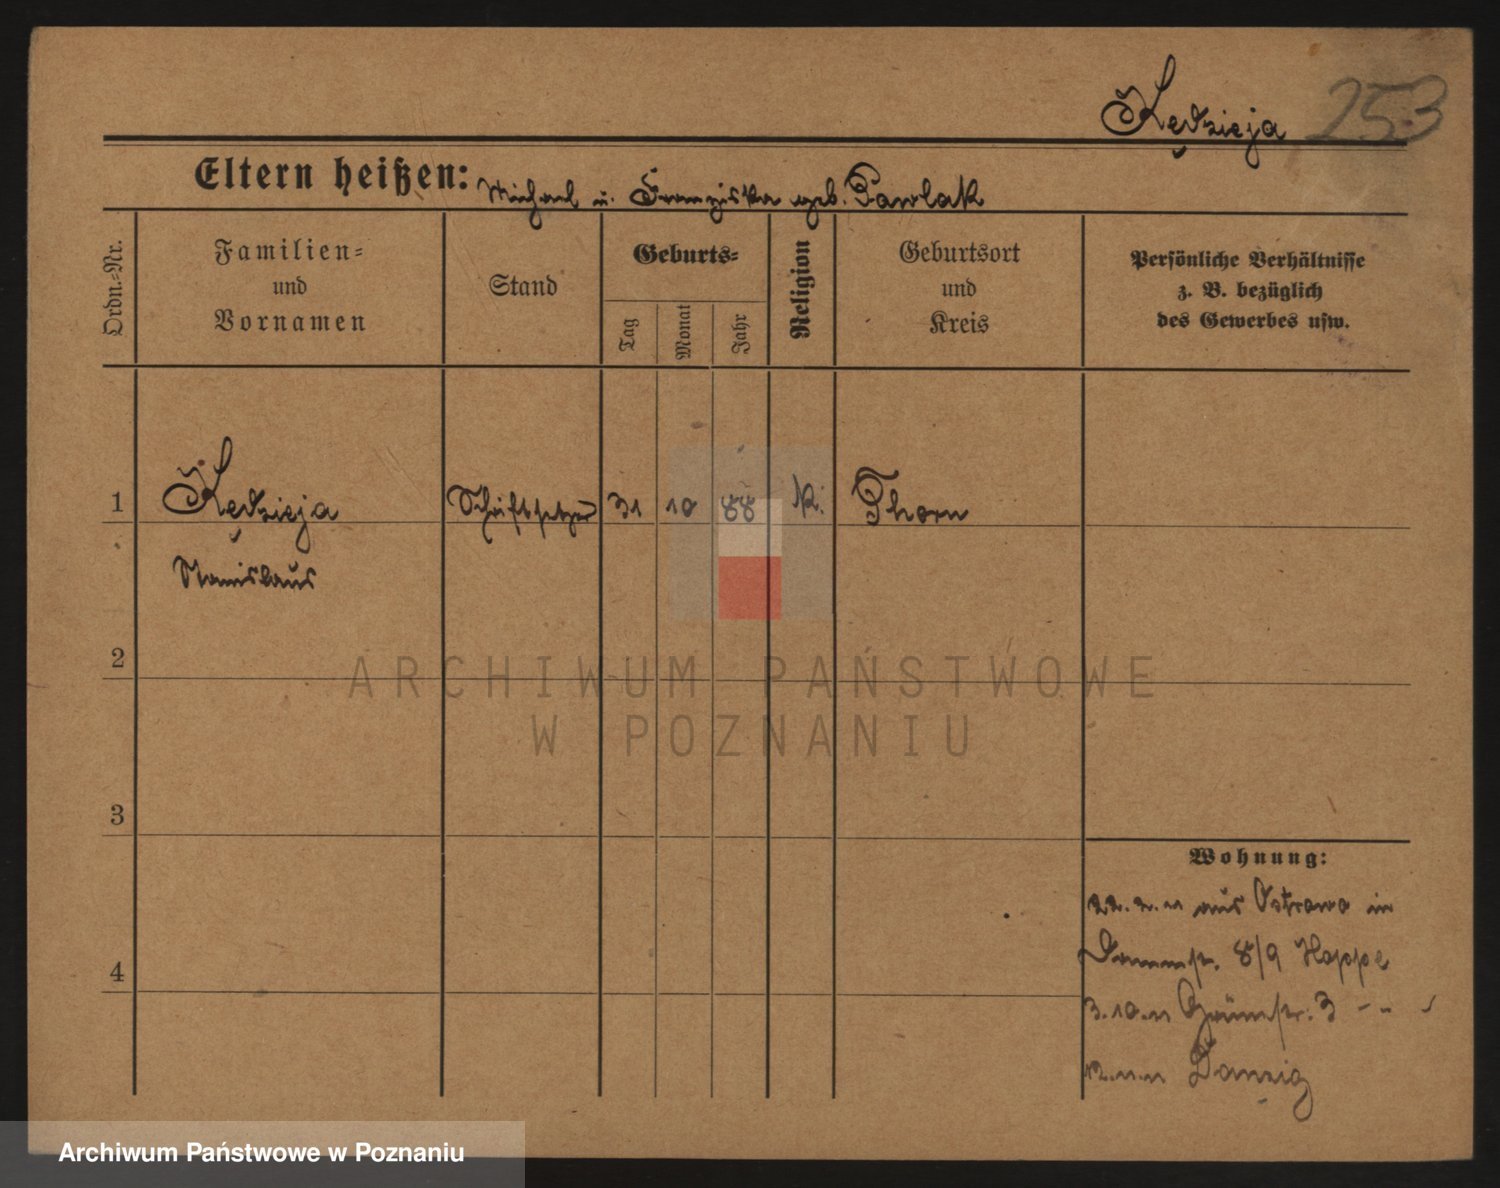 Kędzieja 253
Eltern heißen: Michael u. Franziska geb. Pawlak
Ordn.-Nr.
Familien-
und
Vornamen
Stand
Geburts-
Tag
Monat
Jahr
Religion
Geburtsort
und
Kreis
Persönliche Verhältnisse
z. B. bezüglich
des Gewerbes usw.
1 Kędzieja Schriftsetzer 31 10 88 k. Thorn
Stanislaus
2
ARCHIWUM PAŃSTWOWE
W POZNANIU
3
Wohnung:
22.2.11 aus Ostrowo in
Dammstr. 8/9 Hoppe
4
3.10.11 Grünstr. 3 - -
12.11.11 Danzig
Archiwum Państwowe w Poznaniu